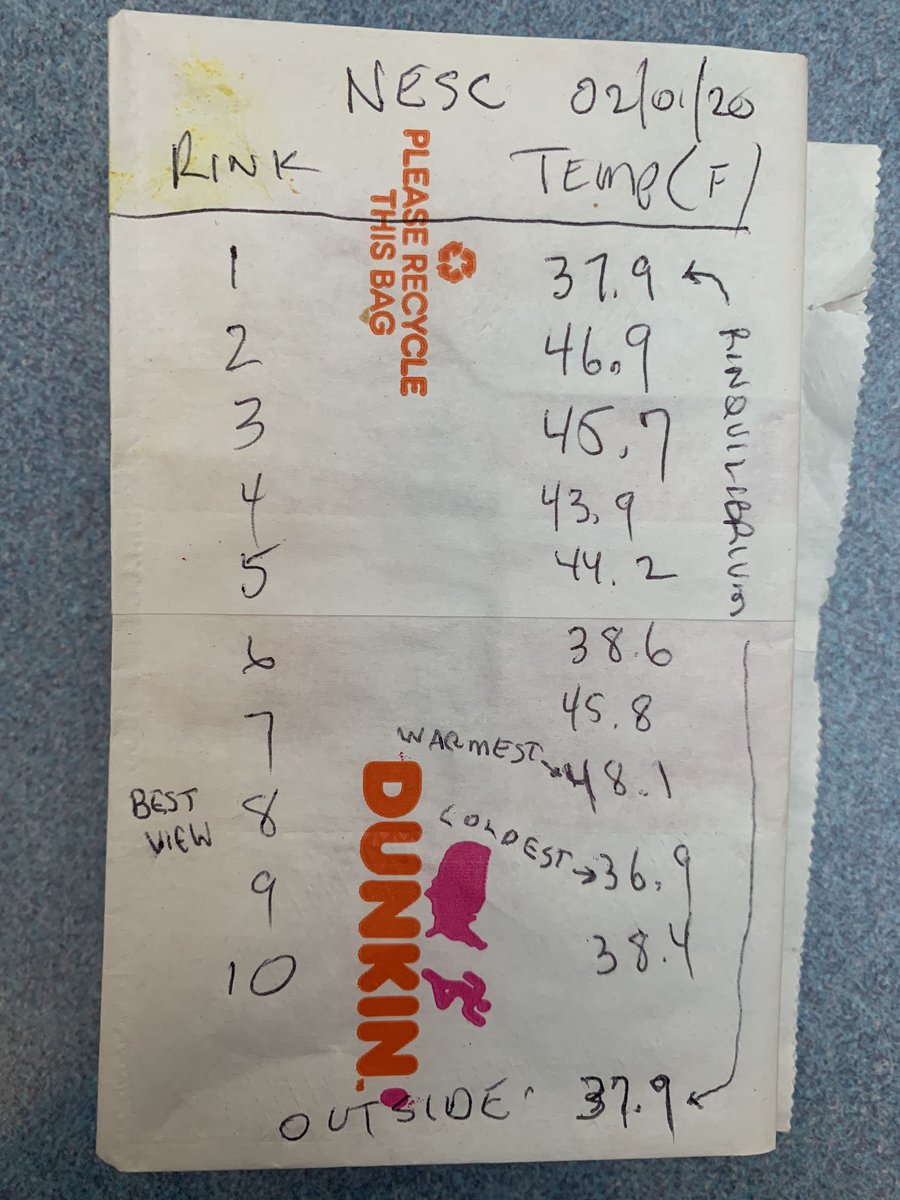 NESC 02/01/20
RINK TEMP(F)
1 37.9
2 46.9
3 45.7
4 43.9
5 44.2
6 38.6
7 45.8
BEST VIEW 8 WARMEST 48.1
9 COLDEST 36.9
10 38.4
OUTSIDE: 37.9
RINQUILIBRIUM
PLEASE RECYCLE
THIS BAG
DUNKIN'